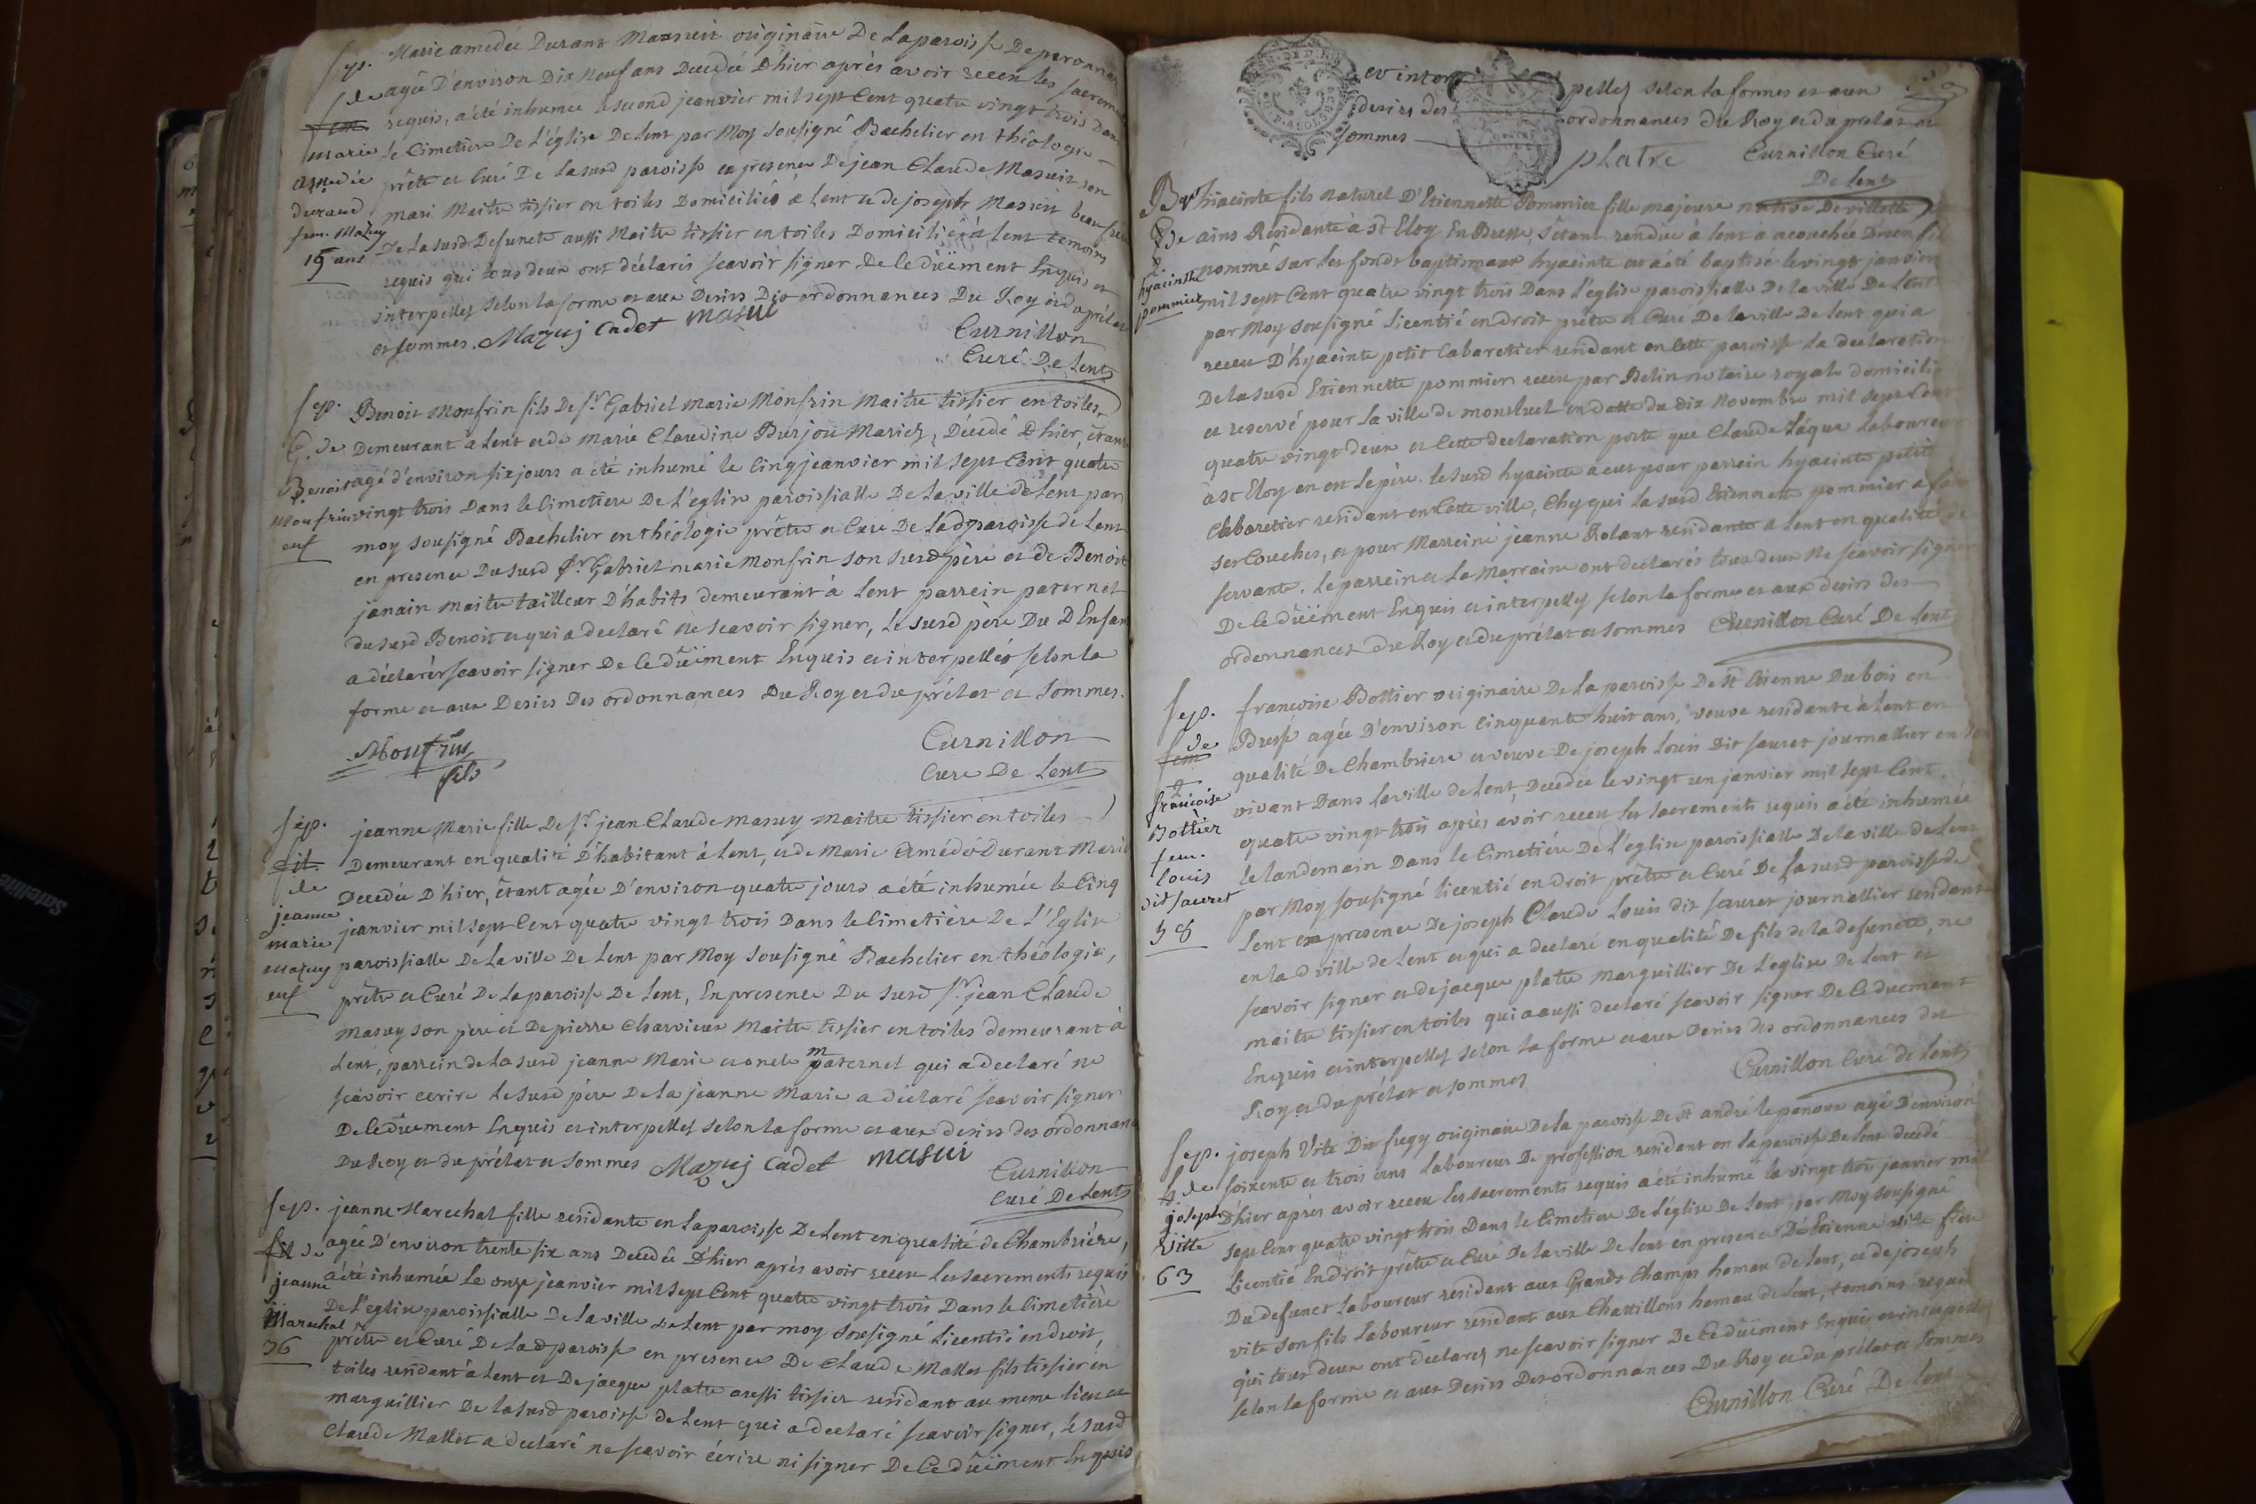 Marie amedée Durant Masuit originaire De la paroisse De peronnas
agée D'environ Dix Neuf ans Decedée D'hier après avoir receu les sacrem
requis, a été inhumée le second jeanvier mil sept Cent quatre vingt trois Dans
le Cimetiere De L'église De Lent par Moy sousigné Bachelier en théologie
prêtre et Curé De Lasusd paroisse en presence De jean Claude Masuit son
mari Maitre tissier en toiles Domicilié a Lent et de joseph Masuit beau frere
De Lasusd Defuncte aussi Maitre tissier en toiles Domicilié à Lent temoins
requis qui tous deux ont déclarés scavoir signer De Ce dûëment Enquis et
interpelles selon la forme et aux Desirs Des ordonnances Du Roy et du prélat
et sommes. Mazuj Cadet masui
Curnillon
Curé De Lent
sep. de
fem.
marie
amedée
durand
fem. Mazuy
19 ans
sep.
G. de
Benoit
Monfrin
enf
Benoit Monfrin fils De sr Gabriel Marie Monfrin Maitre tissier en toiles
Demeurant a Lent et de Marie Claudine Burjou Mariés, Decedé D'hier, étant
agé d'environ six jours a été inhumé le Cinq jeanvier mil sept Cent quatre
vingt trois Dans le Cimetiere De L'eglise paroissialle De la ville de Lent par
moy sousigné Bachelier en théologie prêtre et Curé De Lad paroisse de Lent
en presence Du susd sr Gabriel marie Monfrin son susd père et de Benoit
janain maitre tailleur D'habits demeurant à Lent parrein paternel
du susd Benoit et qui a declaré ne scavoir signer, Le susd père Du D Enfan
a déclarér scavoir signer De Ce dûëment Enquis et interpellés selon la
forme et aux Desirs Des ordonnances Du Roy et du prélat et sommes.
Monfrin
fils
Curnillon
Cure De Lent
sep.
fil.
de
jeanne
marie
mazuy
enf
jeanne Marie fille De sr jean Claude masuy maitre tissier en toiles
Demeurant en qualité D'habitant à Lent, et de Marie Amédé Durant Marié
Decedée D'hier, étant agée D'environ quatre jours a été inhumée le Cinq
jeanvier mil sept Cent quatre vingt trois Dans le Cimetière De L'Eglise
paroissialle De la ville De Lent par Moy sousigné Bachelier en théologie,
prêtre et Curé De La paroisse De Lent, En presence Du susd sr jean Claude
masuy son pere et De pierre Charvieux Maitre tissier en toiles demeurant à
Lent, parrein de La susd jeanne Marie et oncle paternel qui a declaré ne
scavoir ecrire Le susd père De la jeanne Marie a déclaré scavoir signer
De Ce dûëment Enquis et interpelles selon la forme et aux desirs des ordonnan
Du Roy et du prélat et sommes Mazuj Cadet masui
Curnillon
Curé De Lent
sep.
fil de
jeanne
Marechal
36
jeanne Marechal fille residante en la paroisse De Lent en qualité de Chambriére,
agée D'environ trente six ans Decedée D'hier après avoir receu les sacrements requis
a été inhumée Le onze jeanvier mil sept Cent quatre vingt trois Dans le Cimetière
De L'eglise paroissialle De la ville De Lent par moy sousigné Licentié en droit,
prêtre et Curé De Lad paroisse en presence De Claude Mallet fils tissier en
toiles residant à Lent et De jacque platre aussi tissier residant au meme lieu et
marguillier De la susd paroisse de Lent qui a declaré scavoir signer, le susd
Claude Mallet a declaré ne scavoir écrire ni signer De Ce dûëment Enquis
et inter pelles selon la formes et aux
desirs des ordonnances du Roy et du prelat et
sommes
platre Curnillon Curé
De Lent
hiacinte fils naturel D'Etiennette Pommier fille majeure native De villette
ains Residante à St Eloy En Bresse, s'étant rendue à Lent a acouchée D'un fil
nommé sur les fonds baptismaux hyacinte et a été baptisé le vingt janvier
mil sept Cent quatre vingt trois Dans l'église paroissialle De la ville De Lent
par Moy sousigné Licentié en droit prêtre et Curé De la ville De Lent qui a
receu D'hyacinte petit Cabaretier residant en Cette paroisse La declaration
De la susd Etiennette pommier receu par Belin notaire royale domicilié
et reservé pour la ville de monluel en datte du dix Novembre mil sept Cent
quatre vingt deux et Cette declaration porte que Claude Laque Laboureur
à St Eloy en est Le père. Le susd hyacinte a eut pour parrein hyacinte petit
Cabaretier residant en Cette ville, Chez qui la susd Etiennette pommier a fait
ses Couches, et pour Marreine jeanne Rolant residante à Lent en qualité de
servante. Le parrein et La Marraine ont declarés tous deux ne scavoir signer
De Ce dûëment Enquis et interpelles selon la forme et aux desirs des
ordonnances du Roy et du prélat et sommes Curnillon Curé De Lent
hyacinthe
pommier
sep.
de
fem
francoise
Bottier
fem.
louis
dit sauret
58
francoise Bottier originaire De la paroisse De St Etienne Du bois en
Bresse agée D'environ Cinquante huit ans, veuve residante à Lent en
qualité De Chambriere et veuve De joseph Louis Dit sauret journallier en son
vivant Dans la ville de Lent, Decedée le vingt un janvier mil sept Cent
quatre vingt trois après avoir receu les sacrements requis a été inhumée
le landemain Dans le Cimetiére De L'église paroissialle De la ville de Lent
par Moy sousigné licentié en droit prêtre et Curé De La susd paroisse de
Lent en presence De joseph Claude Louis dit sauret journallier residant
en la d ville de Lent et qui a declaré en qualité De fils de la defuncte, ne
scavoir signer et de jacque platre marguillier De L'eglise De Lent et
maitre tissier en toiles qui a aussi declaré scavoir signer De Ce duement
Enquis et interpelles selon la forme et aux Desirs des ordonnances du
Roy et du prélat et sommes Curnillon Curé de Lent
sep.
h. de
joseph
vitte
63
joseph Vite Dit fregy originaire De la paroisse De St andré le panoux agé D'environ
soixente et trois ans Laboureur De profession residant en la paroisse De Lent decedé
D'hier après avoir receu les sacrements requis a été inhumé le vingt trois janvier mil
sept Cent quatre vingt trois Dans le Cimetiere De L'église De Lent par Moy sousigné
Licentié En droit prêtre et Curé De la ville De Lent en presence D'Etienne vite frère
Du defunct Laboureur residant aux Grands Champs hameau de Lent, et de joseph
vite son fils Laboureur residant aux Chattillons hameau de Lent, temoins requis
qui tous deux ont déclarés ne scavoir signer De Ce dûëment Enquis et interpelles
selon la forme et aux Desirs Des ordonnances Du Roy et du prélat et sommes
Curnillon Curé De Lent